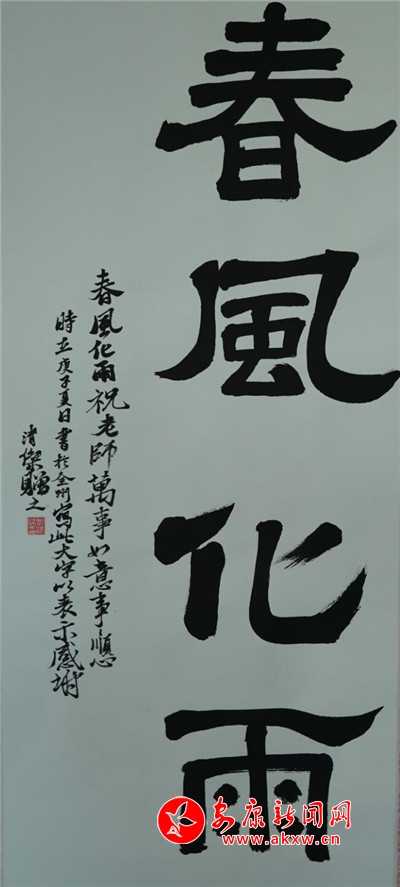 春風化雨
春風化雨祝老師萬事如意事事順心
時在庚子夏日書於金州寫此大字以表示感謝
清傑贈之
安康新闻网
www.akxw.cn